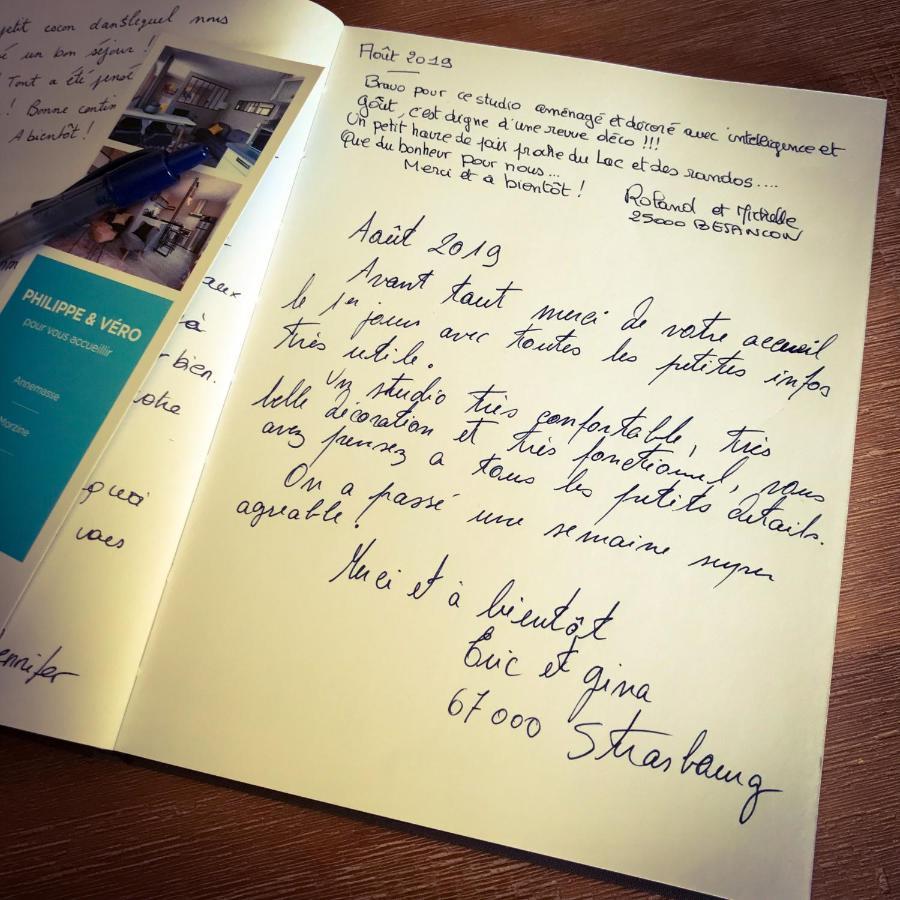 petit cocon dans lequel nous
un bon séjour !
Tout a été pensé
! Bonne contin
A bientôt !
PHILIPPE & VÉRO
pour vous accueillir
Annemasse
Morzine
aux
à
bien.
votre
quoi
vous
ennifer
Août 2019
Bravo pour ce studio aménagé et décoré avec intelligence et
goût, c'est digne d'une revue déco !!!
Un petit havre de paix proche du Lac et des randos....
Que du bonheur pour nous...
Merci et à bientôt !
Roland et Michelle
25000 BESANCON
Août 2019
Avant tout merci de votre accueil
le 1er jour avec toutes les petites infos
très utile.
Un studio très confortable, très
belle décoration et très fonctionnel, vous
avez pensez a tous les petits détails.
On a passé une semaine super
agréable.
Merci et à bientôt
Eric et gina
67000 Strasbourg